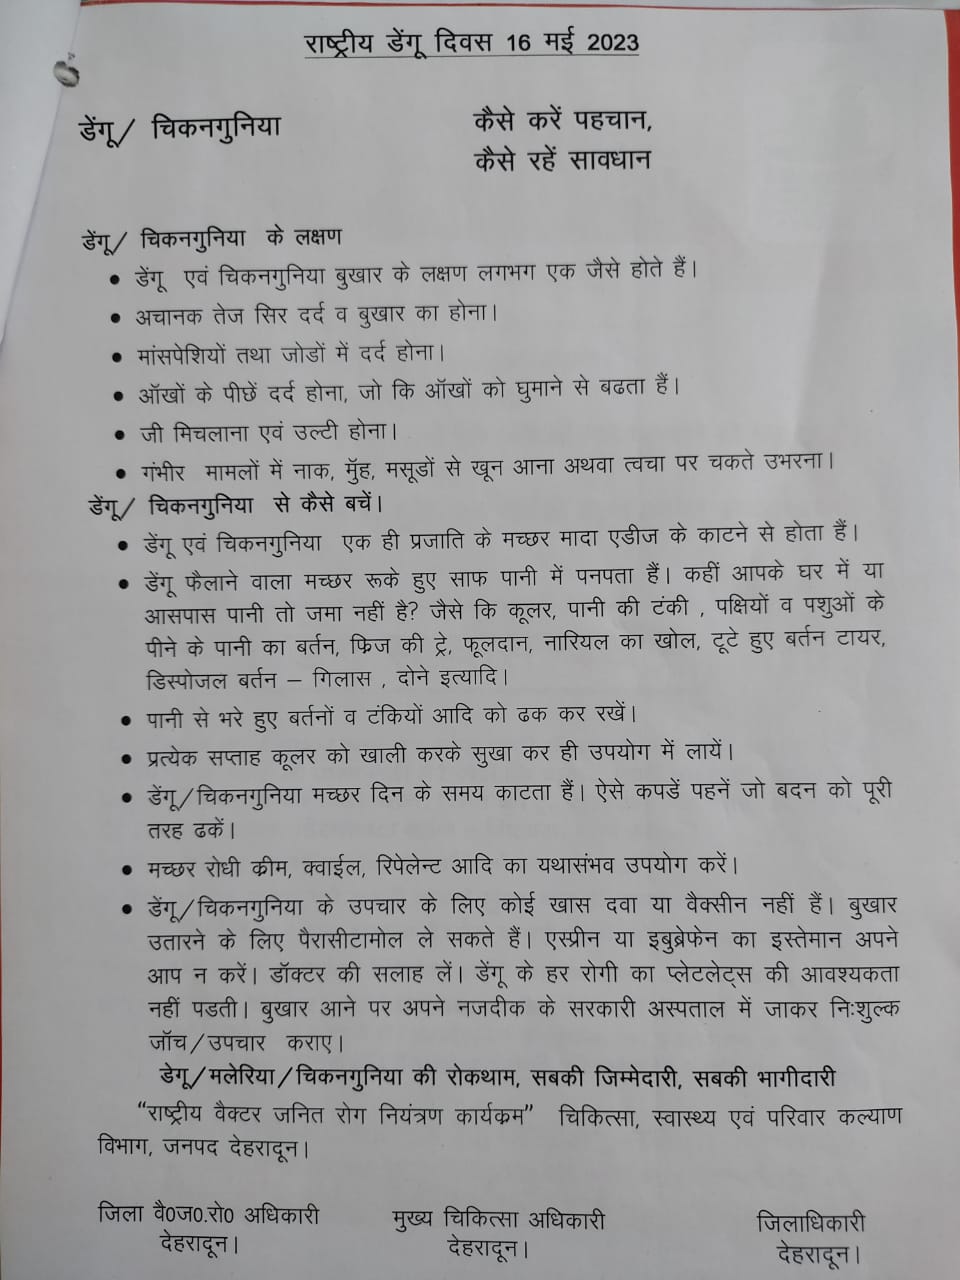 राष्ट्रीय डेंगू दिवस 16 मई 2023
डेंगू/ चिकनगुनिया
कैसे करें पहचान,
कैसे रहें सावधान
डेंगू/ चिकनगुनिया के लक्षण
• डेंगू एवं चिकनगुनिया बुखार के लक्षण लगभग एक जैसे होते हैं।
• अचानक तेज सिर दर्द व बुखार का होना।
• मांसपेशियों तथा जोडों में दर्द होना।
• ऑखों के पीछें दर्द होना, जो कि ऑखों को घुमाने से बढता हैं।
• जी मिचलाना एवं उल्टी होना।
• गंभीर मामलों में नाक, मुॅह, मसूडों से खून आना अथवा त्वचा पर चकते उभरना।
डेंगू/ चिकनगुनिया से कैसे बचें।
• डेंगू एवं चिकनगुनिया एक ही प्रजाति के मच्छर मादा एडीज के काटने से होता हैं।
• डेंगू फैलाने वाला मच्छर रूके हुए साफ पानी में पनपता हैं। कहीं आपके घर में या
आसपास पानी तो जमा नहीं है? जैसे कि कूलर, पानी की टंकी , पक्षियों व पशुओं के
पीने के पानी का बर्तन, फ्रिज की ट्रे, फूलदान, नारियल का खोल, टूटे हुए बर्तन टायर,
डिस्पोजल बर्तन – गिलास , दोने इत्यादि।
• पानी से भरे हुए बर्तनों व टंकियों आदि को ढक कर रखें।
• प्रत्येक सप्ताह कूलर को खाली करके सुखा कर ही उपयोग में लायें।
• डेंगू/चिकनगुनिया मच्छर दिन के समय काटता हैं। ऐसे कपडें पहनें जो बदन को पूरी
तरह ढकें।
• मच्छर रोधी क्रीम, क्वाईल, रिपेलेन्ट आदि का यथासंभव उपयोग करें।
• डेंगू/चिकनगुनिया के उपचार के लिए कोई खास दवा या वैक्सीन नहीं हैं। बुखार
उतारने के लिए पैरासीटामोल ले सकते हैं। एस्प्रीन या इबुब्रेफेन का इस्तेमान अपने
आप न करें। डॉक्टर की सलाह लें। डेंगू के हर रोगी का प्लेटलेट्स की आवश्यकता
नहीं पडती। बुखार आने पर अपने नजदीक के सरकारी अस्पताल में जाकर निःशुल्क
जॉच/उपचार कराए।
डेगू/मलेरिया/चिकनगुनिया की रोकथाम, सबकी जिम्मेदारी, सबकी भागीदारी
“राष्ट्रीय वैक्टर जनित रोग नियंत्रण कार्यक्रम” चिकित्सा, स्वास्थ्य एवं परिवार कल्याण
विभाग, जनपद देहरादून।
जिला वै0ज0.रो0 अधिकारी
देहरादून।
मुख्य चिकित्सा अधिकारी
देहरादून।
जिलाधिकारी
देहरादून।